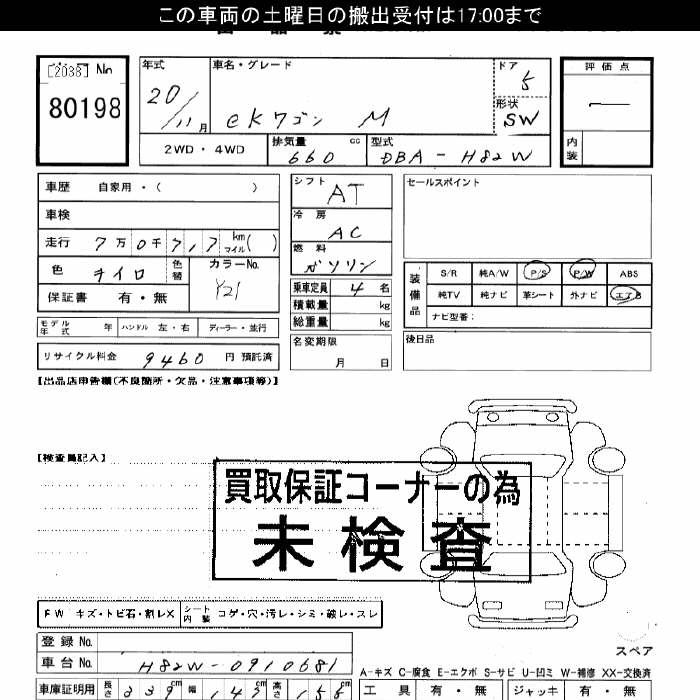 この車両の土曜日の搬出受付は17:00まで
[2038] No
80198
年式
20/11月
車名・グレード
eKワゴン M
ドア
5
形状
SW
評価点
内装
2WD・4WD
排気量 660 cc
型式 DBA-H82W
車歴 自家用・( )
車検
走行 7万0千7,17 km マイル( )
色 キイロ 色替
カラーNo. Y21
保証書 有・無
シフト
AT
冷房
AC
燃料
ガソリン
乗車定員 4名
積載量 kg
総重量 kg
セールスポイント
装備品
S/R 純A/W P/S P/W ABS
純TV 純ナビ 革シート 外ナビ エアB
ナビ型番:
モデル年式 年 ハンドル 左・右 ディーラー・並行
リサイクル料金 9460 円 預託済
名変期限
月 日
後日品
【出品店申告欄(不良箇所・欠品・注意事項等)】
【検査員記入】
買取保証コーナーの為
未検査
FW キズ・トビ石・割レX
シート内装 コゲ・穴・汚レ・シミ・破レ・スレ
登録No.
車台No. H82W-0910681
スペア
A-キズ C-腐食 E-エクボ S-サビ U-凹ミ W-補修 XX-交換済
車庫証明用 長さ 339cm 幅 147cm 高さ 155cm
工具 有・無 ジャッキ 有・無